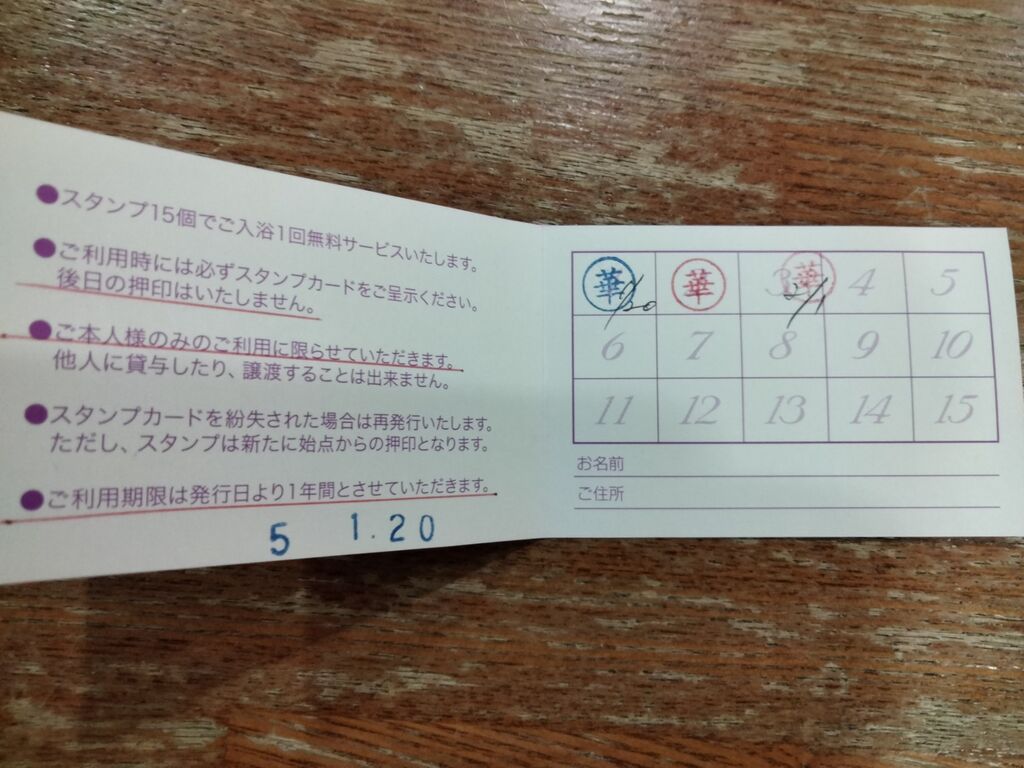 ●スタンプ15個でご入浴1回無料サービスいたします。
●ご利用時には必ずスタンプカードをご呈示ください。
後日の押印はいたしません。
●ご本人様のみのご利用に限らせていただきます。
他人に貸与したり、譲渡することは出来ません。
●スタンプカードを紛失された場合は再発行いたします。
ただし、スタンプは新たに始点からの押印となります。
●ご利用期限は発行日より1年間とさせていただきます。
5 1.20
華 華 3 華 4 5
1/20
6 7 8 9 10
11 12 13 14 15
お名前
ご住所